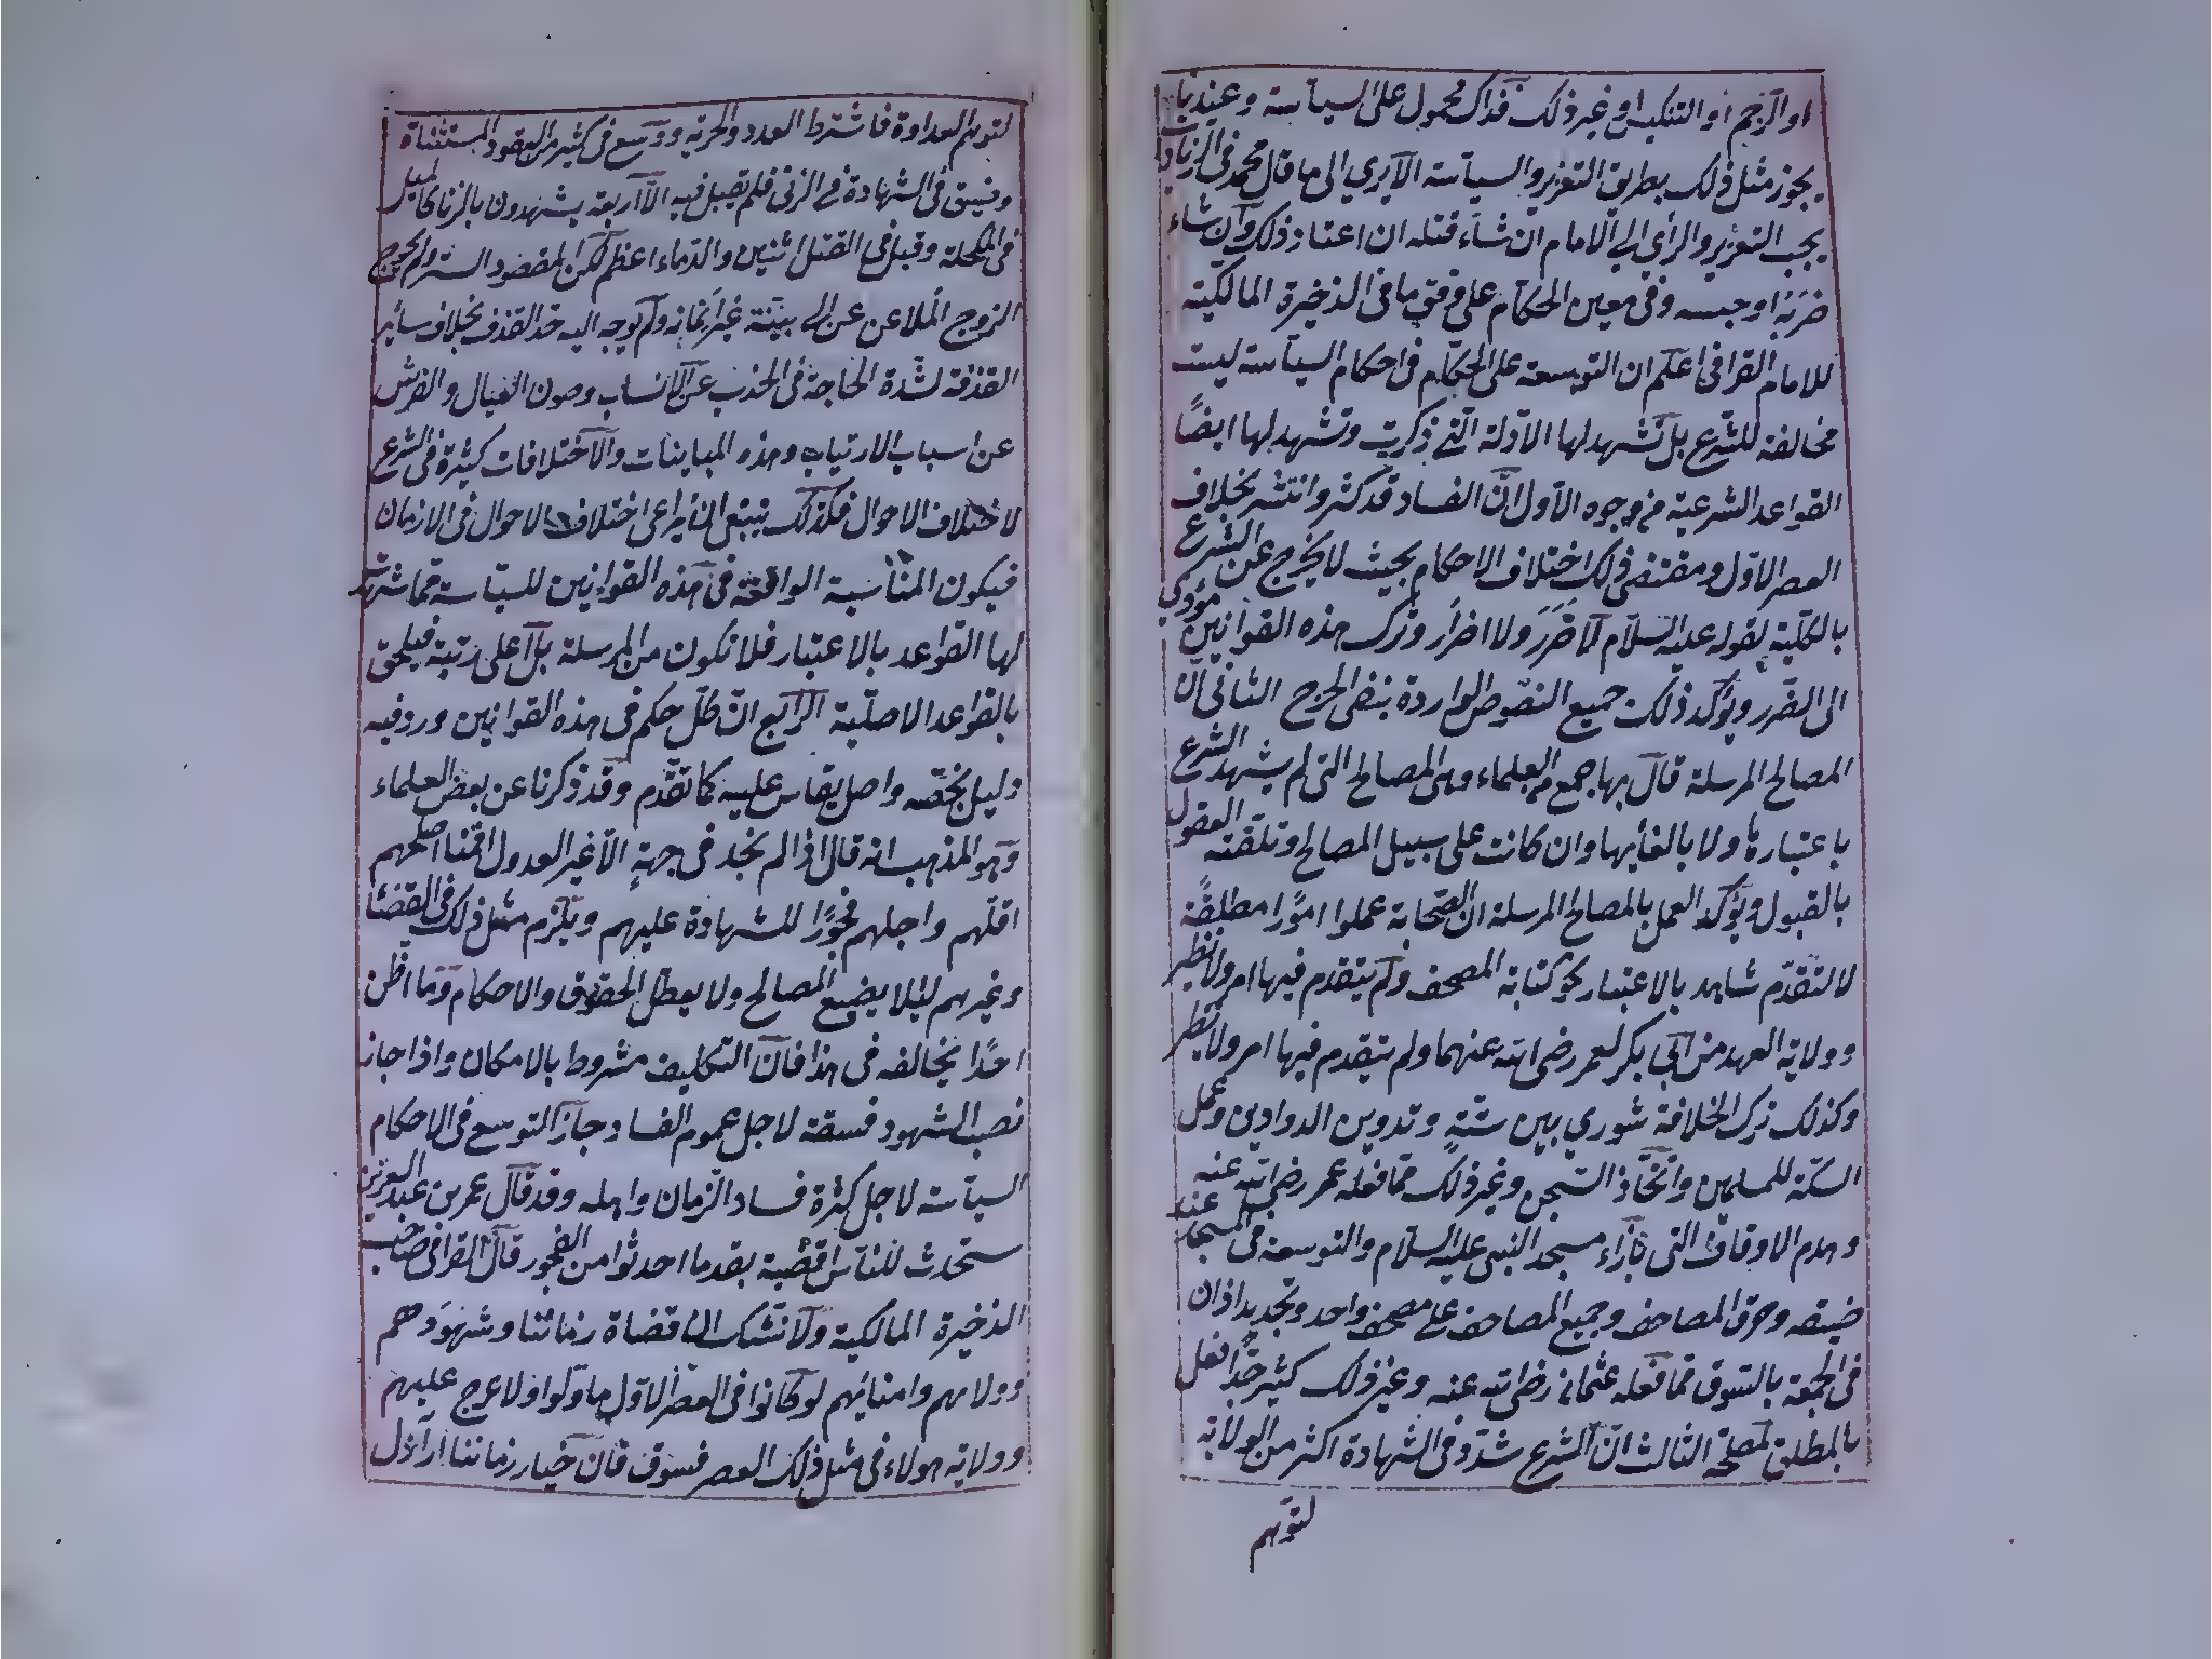 او الرجم او التنكيس او غير ذلك فذاك محمول على السياسة وعندنا
يجوز مثل ذلك بطريق التعزير والسياسة الا يري الى ما قال محمد في الزيادات
يجب التعزير والرأي الى الامام ان شاء قتله ان اعتاد ذلك وان شاء
ضربه او حبسه وفي معين الحكام على وفق ما في الذخيرة المالكية
للامام القرافي اعلم ان التوسعة على الحكام في احكام السياسة ليست
مخالفة للشرع بل تشهد لها الادلة التي ذكرت وتشهد لها ايضًا
القواعد الشرعية من وجوه الاول ان الفساد قد كثر وانتشر بخلاف
العصر الاول ومقتضى ذلك اختلاف الاحكام بحيث لا يخرج عن الشرع
بالكلية لقوله عليه السلام لا ضَرَرَ ولا اضرار وترك هذه القوانين مؤدي
الى الضرر ويؤكد ذلك جميع النصوص الواردة بنفي الحرج الثاني ان
المصالح المرسلة قال بها جمع من العلماء وهي المصالح التي لم يشهد الشرع
باعتبارها ولا بالغائها وان كانت على سبيل المصالح وتلقته العقول
بالقبول ويؤكد العمل بالمصالح المرسلة ان الصحابة عملوا امورًا مطلقة
لا لتقدم شاهد بالاعتبار نحو كتابة المصحف ولم يتقدم فيها امر ولا نظير
وولاية العهد من ابي بكر لعمر رضي الله عنهما ولم يتقدم فيها امر ولا نظير
وكذلك ترك الخلافة شوري بين ستةٍ وتدوين الدواوين وعمل
السكة للمسلمين واتخاذ السجن وغير ذلك مما فعله عمر رضي الله عنه
وهدم الاوقاف التي بازاء مسجد النبي عليه السلام والتوسعة في المسجد عند
ضيقه وحرق المصاحف وجميع المصاحف على مصحف واحد وتجديد اذان
في الجمعة بالسوق مما فعله عثمان رضي الله عنه وغير ذلك كثير جدًا فعل
بالمطلق لمصلحة الثالث ان الشرع شدد في الشهادة اكثر من الولاية
لتوهم
لتوهم العداوة فاشترط العدد والحرية ووسع في كثير من العقود المستثناة
وضيق في الشهادة في الزنى فلم يقبل فيه الا اربعة يشهدون بالزنا كالميل
في المكحلة وقبل في القتل اثنين والدماء اعظم لكن المقصود الستر ولم يحوج
الزوج الملاعن عن الى بينة غير ايمانه ولم يوجه اليه حد القذف بخلاف سائر
القذفة لشدة الحاجة في الحذب عن الانساب وصون العيال والفرش
عن اسباب الارتياب وهذه المباينات والاختلافات كثيرة في الشرع
لاختلاف الاحوال فكذلك ينبغي ان يراعى اختلاف الاحوال في الازمان
فيكون المناسبة الواقعة في هذه القوانين للسياسة مما شهد
لها القواعد بالاعتبار فلا تكون من المرسلة بل اعلى رتبة فيلحق
بالقواعد الاصلية الرابع ان كل حكم في هذه القوانين ورد فيه
دليل يخصه واصل يقاس عليه كما تقدم وقد ذكرنا عن بعض العلماء
وهو المذهب انه قال اذا لم نجد في جهةٍ الا غير العدول اقمنا اصلحهم
اقلهم واجلهم فجورًا للشهادة عليهم ويلزم مثل ذلك في القضا
وغيرهم ليلا يضيع المصالح ولا يعطل الحقوق والاحكام وما اظن
احدًا يخالفه في هذا فان التكليف مشروط بالامكان واذا جاز
نصب الشهود فسقة لاجل عموم الفساد جاز التوسع في الاحكام
السياسة لاجل كثرة فساد الزمان واهله وقد قال عمر بن عبد العزيز
ستحدث للناس اقضية بقدر ما احدثوا من الفجور قال القرافي صاحب
الذخيرة المالكية ولا نشك ان قضاة زماننا وشهودهم
وولاتهم وامنائهم لو كانوا في العصر الاول ما ولوا ولا عرج عليهم
وولاية هولاء في مثل ذلك العصر فسوق فان خيار زماننا اراذل